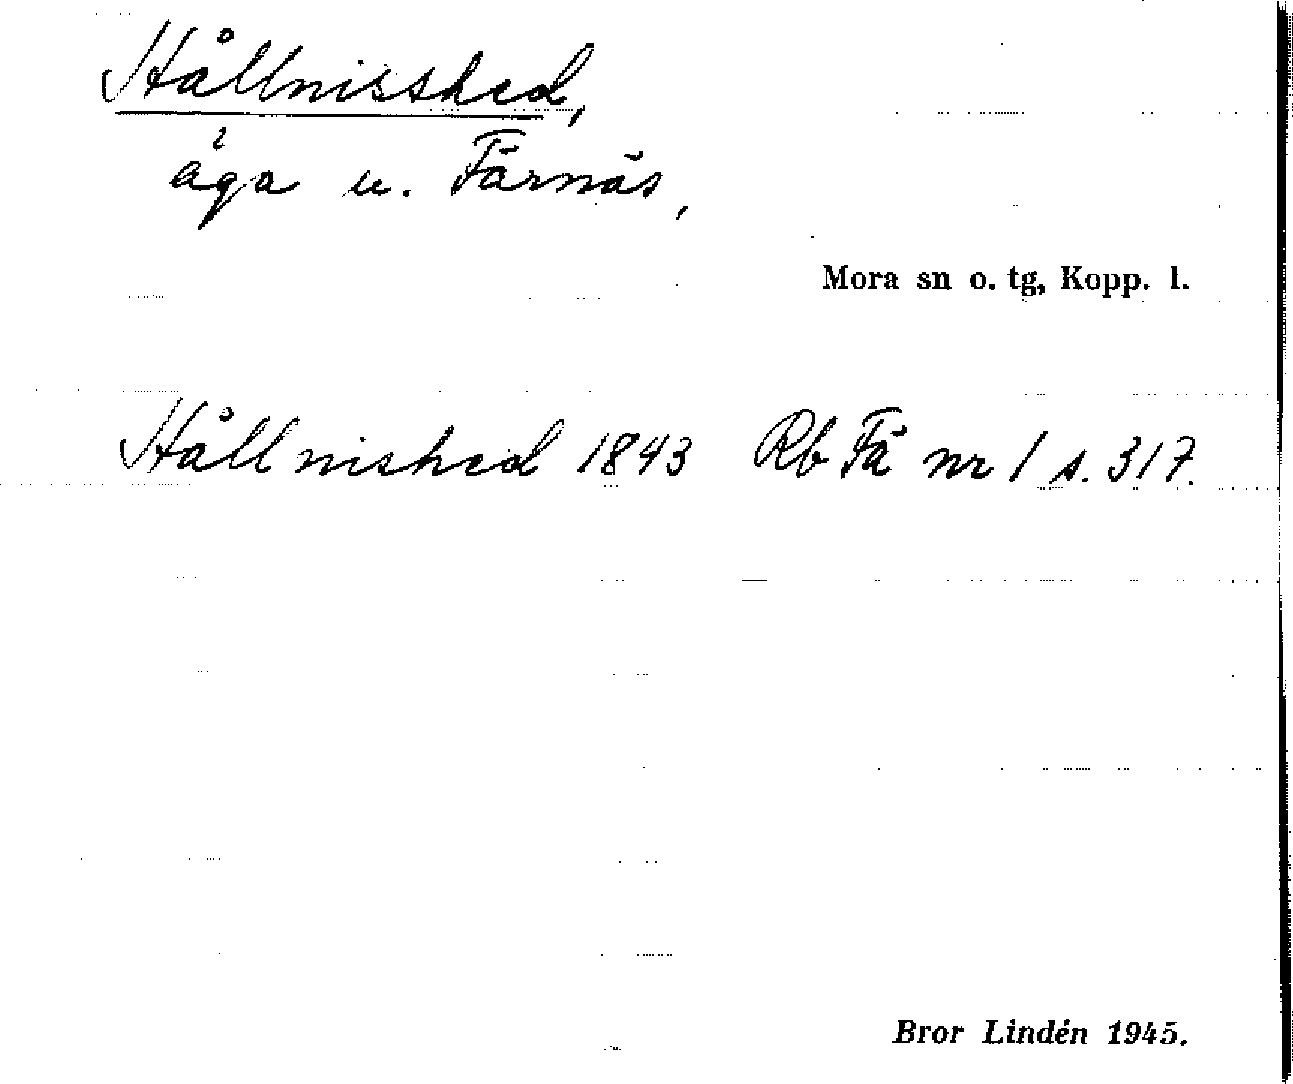 Hållnisshed,
äga u. Färnäs,
Mora sn o. tg, Kopp. l.
Hållnished 1843 Rb Fä nr 1 s. 317.
Bror Lindén 1945.